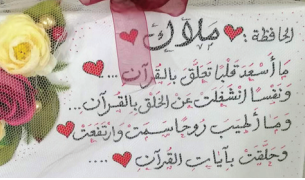 الحافظة : ملاك
مَا أَسْعَدَ قَلْبًا تَعَلَّقَ بِالقُرآنِ ...
وَنَفْسًا انْشَغَلَتْ عَنِ الخَلْقِ بِالقُرآنِ ...
وَمَا أَطْيَبَ رُوحًا سَمَتْ وَارْتَفَعَتْ
وَحَلَّقَتْ بِآيَاتِ القُرآنِ ....